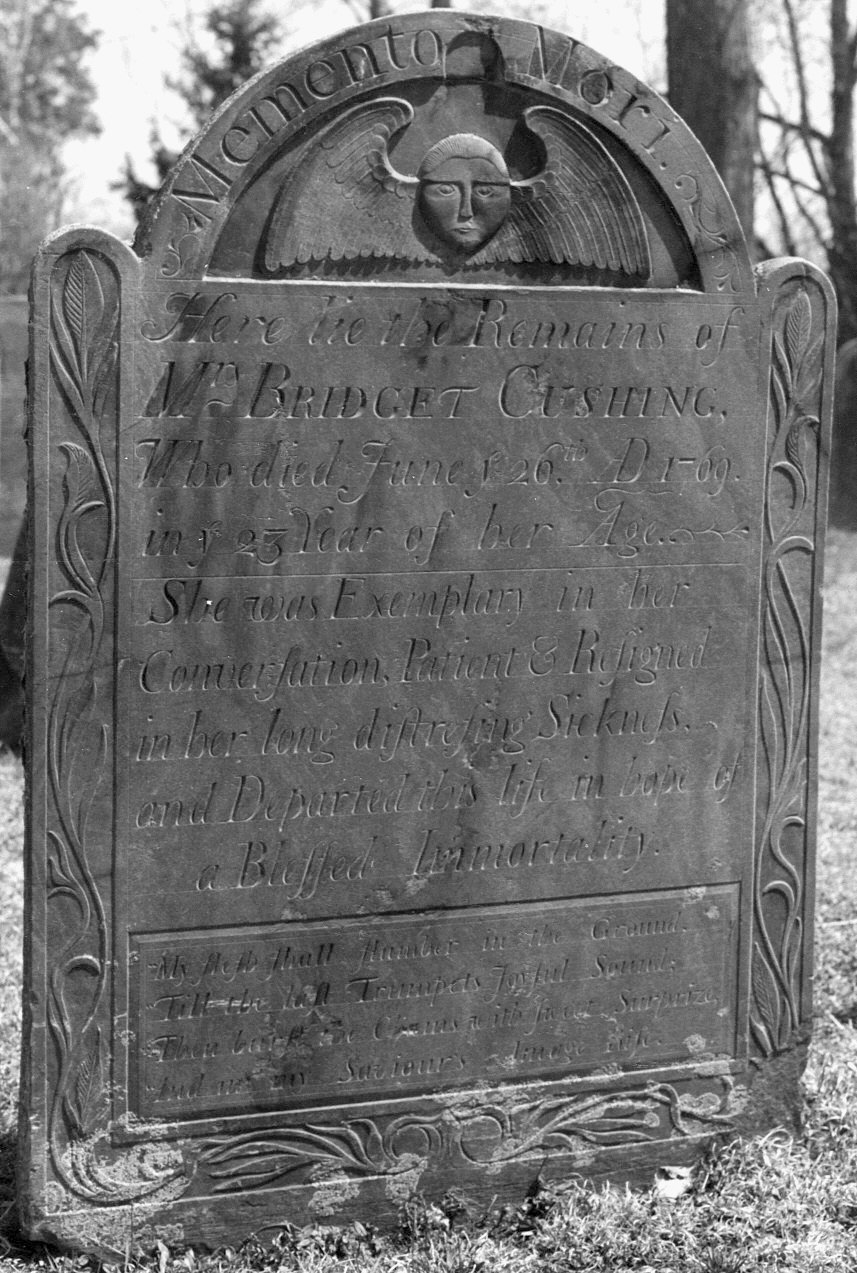 Memento Mori.
Here lie the Remains of
Mrs BRIDGET CUSHING,
Who died June ye 26th. AD 1769.
in ye 23 Year of her Age.
She was Exemplary in her
Converſation, Patient & Reſigned
in her long diſtreſing Sickneſs,
and Departed this life in hope of
a Bleſſed Immortality.
My fleſh ſhall ſlumber in the Ground.
Till the laſt Trumpets Joyful Sound;
Then burſt the Chains with ſweet Surprize,
And in my Saviour's Image riſe.